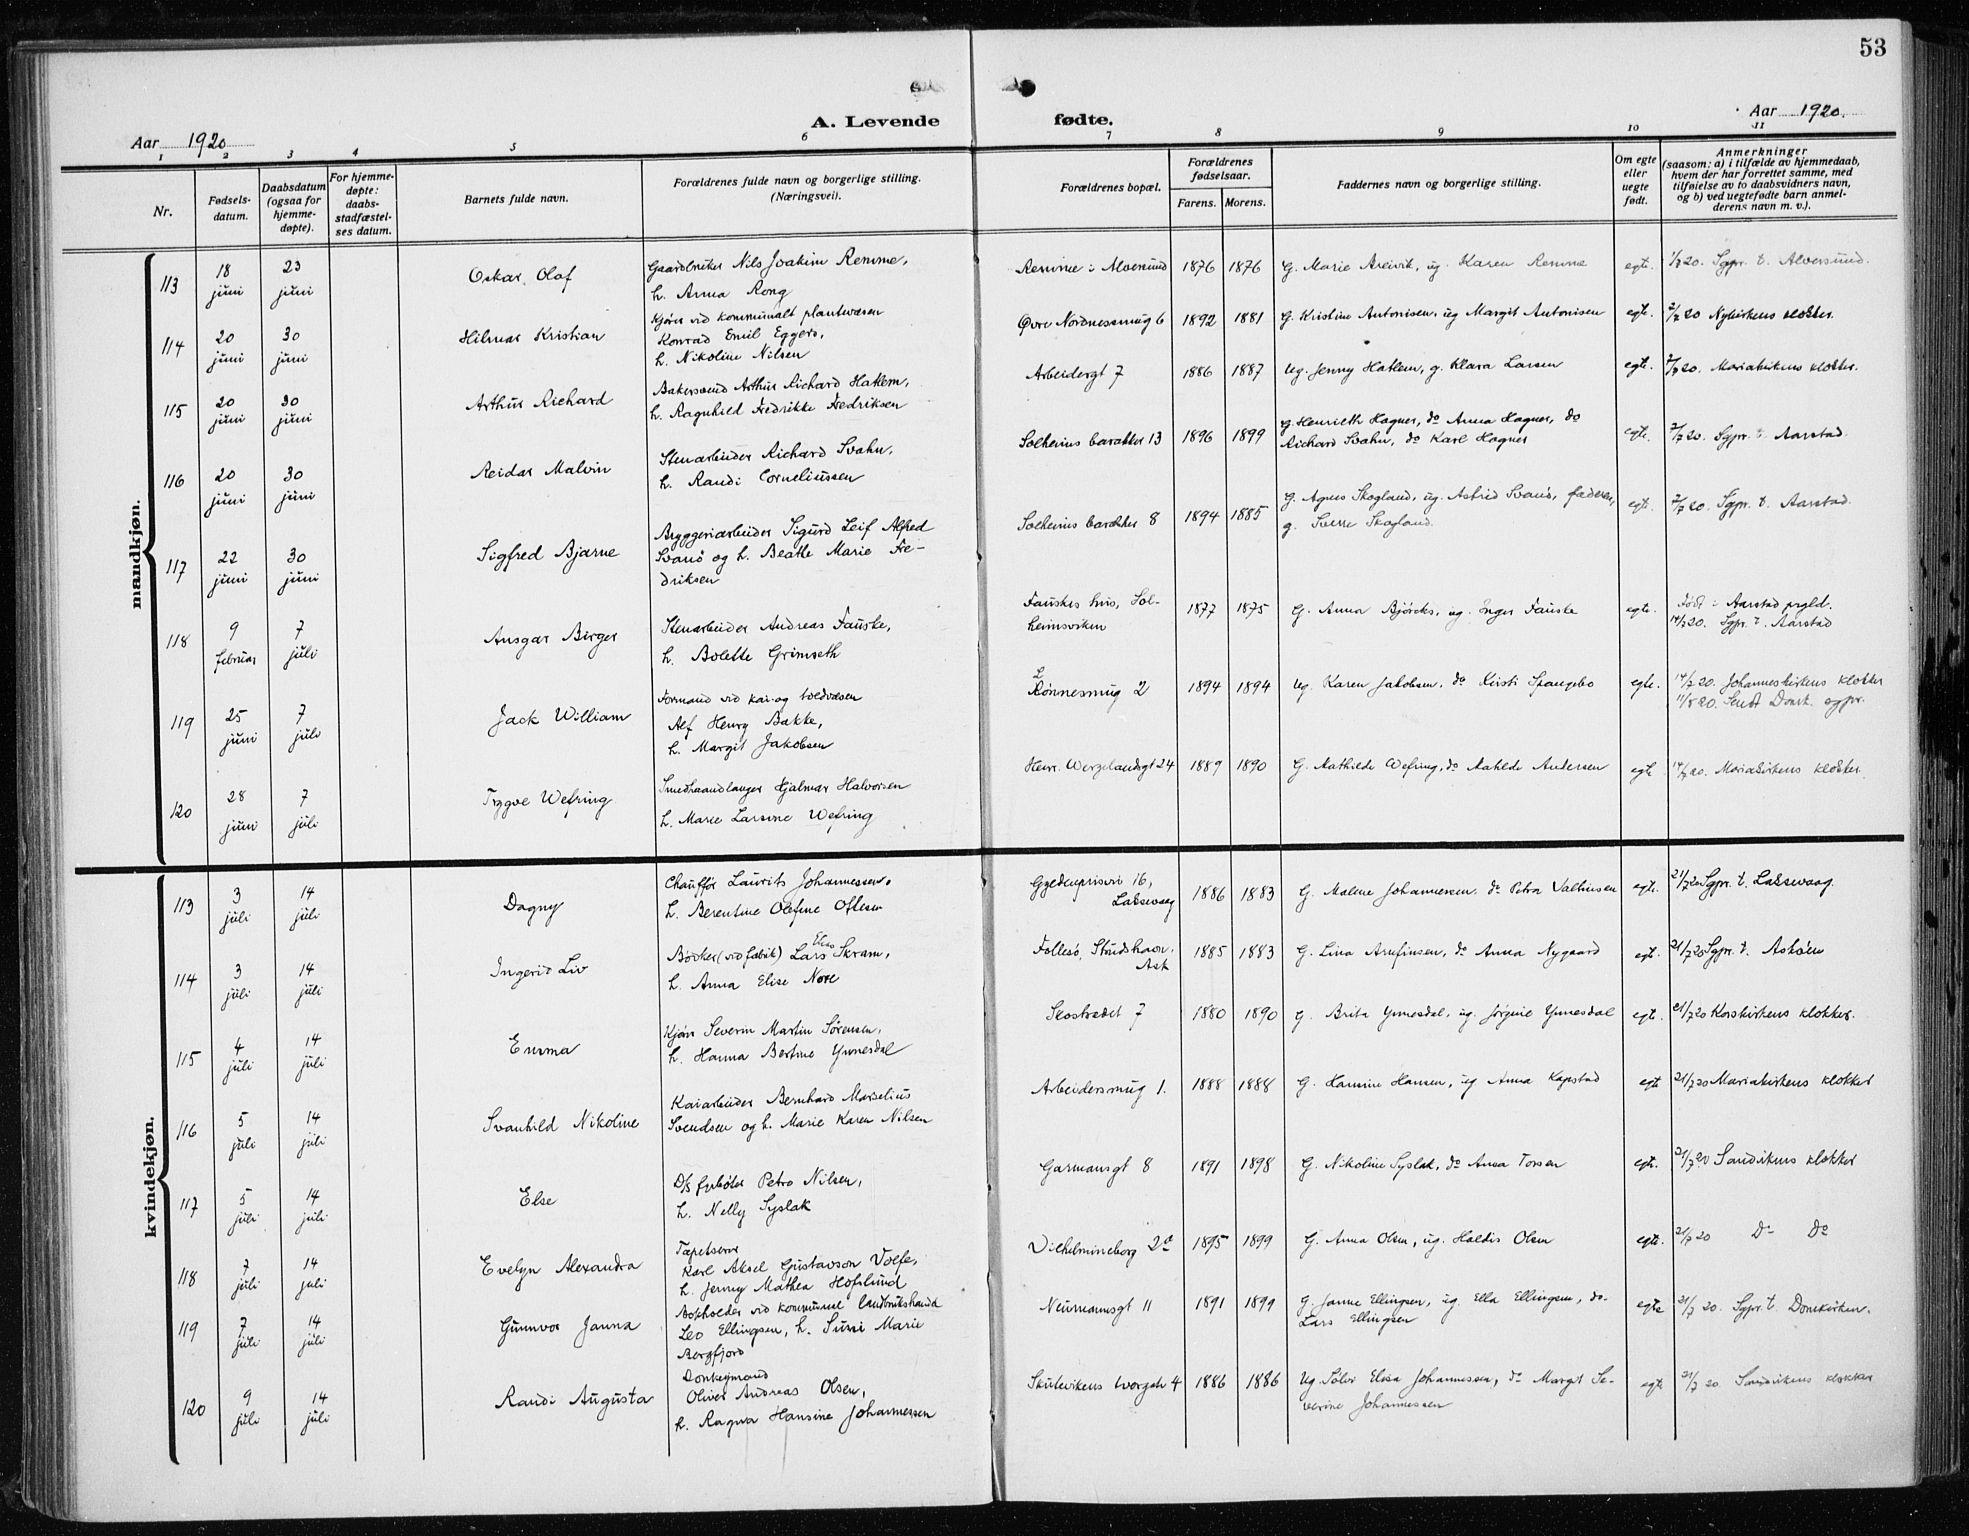 53
A. Levende fødte.
Aar 1920
Aar 1920.
1 2 3 4 5 6 7 8 9 10 11
Nr.
Fødsels-
datum.
Daabsdatum
(ogsaa for
hjemme-
døpte).
For hjemme-
døpte:
daabs-
stadfæstel-
ses datum.
Barnets fulde navn.
Forældrenes fulde navn og borgerlige stilling.
(Næringsvei).
Forældrenes bopæl.
Forældrenes
fødselsaar.
Farens. Morens.
Faddernes navn og borgerlige stilling.
Om egte
eller
uegte
født.
Anmerkninger
(saasom: a) i tilfælde av hjemmedaab,
hvem der har forrettet samme, med
tilføielse av to daabsvidners navn,
og b) ved uegtefødte barn anmel-
derens navn m. v.).
mandkjøn.
113 18 juni 23 juni Oskar Olaf
Gaardbruker Nils Joakim Remme,
h. Anna Rong
Remme i Alversund 1876 1876 G. Marie Areivik, ug. Karen Remme egte. 1/7 20. Sgpr. t. Alversund.
114 20 juni 30 juni Hilmar Kristian
Kjører vid kommunalt plantevæsen
Konrad Emil Eggers,
h. Nikoline Nilsen
Øvre Nordnessmug 6 1892 1881 G. Kristine Antonisen, ug Margit Antonisen egte. 2/7 20 Nykirkens klokker.
115 20 juni 30 juni Arthur Richard
Bakersvend Arthur Richard Hatlem,
h. Ragnhild Fredrikke Fredriksen
Arbeidergt 7 1886 1887 Ug. Jenny Hatlem, g. Klara Larsen egte. 2/7 20. Mariakirkens klokker.
116 20 juni 30 juni Reidar Malvin
Stenarbeider Richard Svahn,
h. Randi Corneliussen
Solheims barakker 13 1896 1899 G. Henrieth Hagner, do Anna Hagner, do
Richard Svahn, do Karl Hagner egte. 2/7 20. Sgpr. t. Aarstad.
117 22 juni 30 juni Sigfred Bjarne
Bryggeriarbeider Sigurd Leif Alfred
Svanø og h. Beathe Marie Fre-
driksen
Solheims barakker 8 1894 1885 G. Agnes Skogland, ug. Astrid Svanø, faderen,
g. Sverre Skogland. egt. 2/7 20. Sgpr. t. Aarstad.
118 9 februar 7 juli Ansgar Birger
Stenarbeider Andreas Fauske,
h. Bolette Grimseth
Fauskes hus, Sol-
heimsviken 1877 1875 G. Anna Bjørcks, ug. Inger Fauske egte. Født i Aarstad prgld.
14/7 20. Sgpr. t. Aarstad
119 25 juni 7 juli Jack William
Formand vid kai- og toldvæsen
Alf Henry Bakke,
h. Margit Jakobsen
Rønnesmug 2 1894 1894 Ug. Karen Jakobsen, do Kirsti Spangebo egte. 14/7 20. Johanneskirkens klokker
11/8 20. Sendt Domk. sgpr.
120 28 juni 7 juli Trygve Wefring
Smedhaandlanger Hjalmar Halvorsen
h. Marie Larsine Wefring
Henr. Wergelandsgt 24 1889 1890 G. Mathilde Wefring, do Mathilde Andersen egte 14/7 20. Mariakirkens klokker.
kvindekjøn.
113 3 juli 14 juli Dagny
Chauffør Laurits Johannessen,
h. Berentine Olefine Oftesen
Gyldenprisvei 16,
Laksevaag 1886 1883 G. Malene Johannessen, do Petra Valhusen egte. 21/7 20 Sgpr. t. Laksevaag.
114 3 juli 14 juli Ingerid Liv
Bødker (vid fabrik) Lars Elias Skram,
h. Anna Elise Nore
Follesø, Strudshavn.
Ask 1885 1883 G. Lina Arnfinsen, do Anna Nygaard egt. 21/7 20 Sgpr. t. Askøen
115 4 juli 14 juli Emma
Kjører Severin Martin Sørensen,
h. Hanna Bertine Ynnesdal
Skostrædet 7 1880 1890 G. Brita Ynnesdal, ug. Jørgine Ynnesdal egt. 21/7 20 Korskirkens klokker.
116 5 juli 14 juli Svanhild Nikoline
Kaiarbeider Bernhard Marselius
Svendsen og h. Marie Karen Nilsen
Arbeidersmug 1. 1888 1888 G. Hansine Hansen, ug Anna Kapstad egt 21/7 20 Mariakirkens klokker
117 5 juli 14 juli Else
D/s fyrbøter Petro Nilsen,
h. Nelly Syslak
Garmansgt 8 1891 1898 G. Nikoline Syslak, do Anna Torsen egt. 21/7 20 Sandvikens klokker
118 7 juli 14 juli Evelyn Alexandra
Tapetserer
Karl Aksel Gustavson Volfe,
h. Jenny Mathea Hofslund
Vilhelmineborg 2a 1895 1899 G. Anna Olsen, ug. Haldis Olsen egte. 21/7 20 Do Do
119 7 juli 14 juli Gunnvor Janna
Bokholder vid kommunal landbrukshandel
Leo Ellingsen, h. Sunni Marie
Bergfjord
Neumannsgt 11 1891 1899 G. Janne Ellingsen, ug. Ella Ellingsen, do.
Lars Ellingsen egte 21/7 20. Sgpr. t. Domkirken.
120 9 juli 14 juli Randi Augusta
Donkeymand
Oliver Andreas Olsen,
h. Ragna Hansine Johannessen
Skutevikens torvgate 4 1886 1886 Ug. Sølvi Elisa Johannessen, do Margit Se-
verine Johannessen egte 21/7 20. Sandvikens klokker